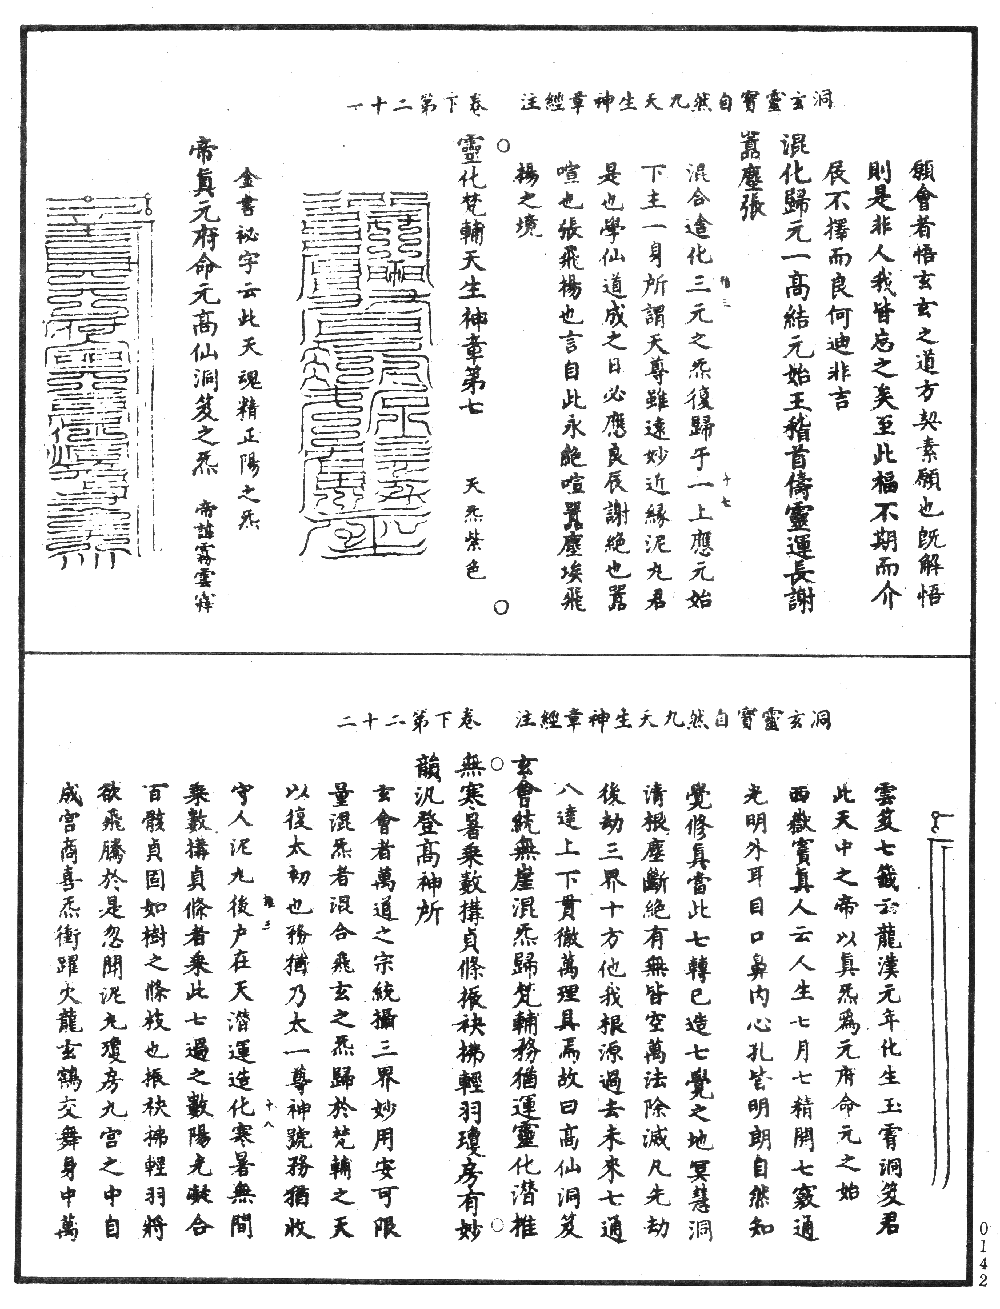 洞玄靈寶自然九天生神章經注　卷下第二十一
願會者悟玄玄之道方契素願也既解悟
則是非人我皆忘之矣至此福不期而介
辰不擇而良何迪非吉
混化歸元一高結元始王稽首儔靈運長謝
囂塵張
混合造化三元之炁復歸于一上應元始
下主一身所謂天尊雖遠妙近緣泥丸君
是也學仙道成之日必應良辰謝絶也囂
喧也張飛揚也言自此永絶喧囂塵埃飛
揚之境
十七
靈化梵輔天生神章第七　天炁紫色
金書祕字云此天魂精正陽之炁
帝真元府命元高仙洞笈之炁　帝諱霧雲
洞玄靈寶自然九天生神章經注　卷下第二十二
雲笈七籤云龍漢元年化生玉霄洞笈君
此天中之帝以真炁爲元府命元之始
西嶽竇真人云人生七月七精開七竅通
光明外耳目口鼻内心孔皆明朗自然知
覺修真當此七轉已造七覺之地冥慧洞
清根塵斷絶有無皆空萬法除滅凡先劫
後劫三界十方他我根源過去未來七通
八達上下貫徹萬理具焉故曰高仙洞笈
玄會統無崖混炁歸梵輔務猶運靈化潛推
無寒暑乘數構貞條振袂拂輕羽瓊房有妙
韻汎登高神所
玄會者萬道之宗統攝三界妙用安可限
量混炁者混合飛玄之炁歸於梵輔之天
以復太初也務猶乃太一尊神號務猶收
守人泥丸後户在天潛運造化寒暑無間
十八
乘數構貞條者乘此七過之數陽光凝合
百骸貞固如樹之條枝也振袂拂輕羽將
欲飛騰於是忽聞泥丸瓊房九宮之中自
成宮商喜炁衝躍火龍玄鶴交舞身中萬
0142